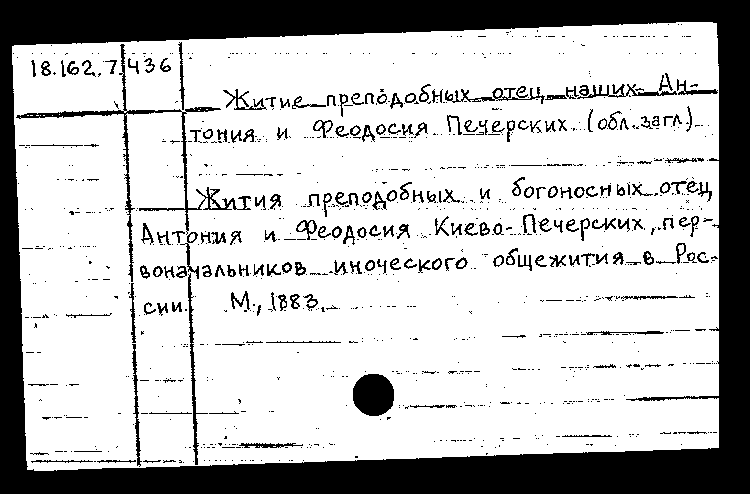 18.162.7.436
Житие преподобных отец наших Ан-
тония и Феодосия Печерских. (обл. загл.)
Жития преподобных и богоносных отец
Антония и Феодосия Киево-Печерских, пер-
воначальников иноческого общежития в Рос-
сии. М., 1883.